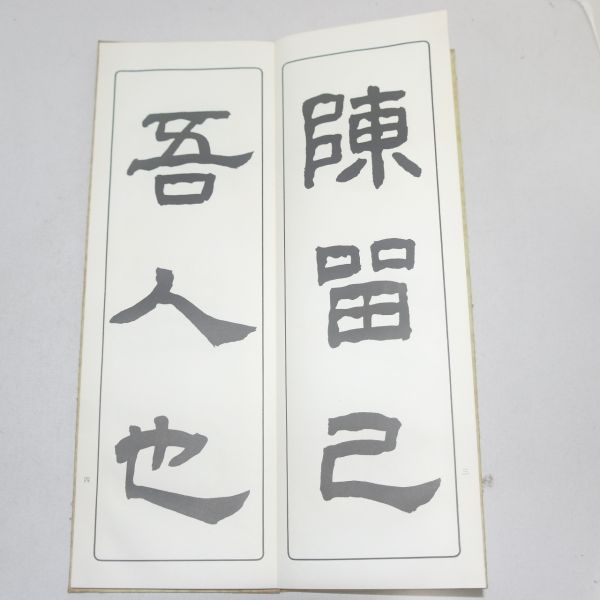 陳留己
吾人也
三
四